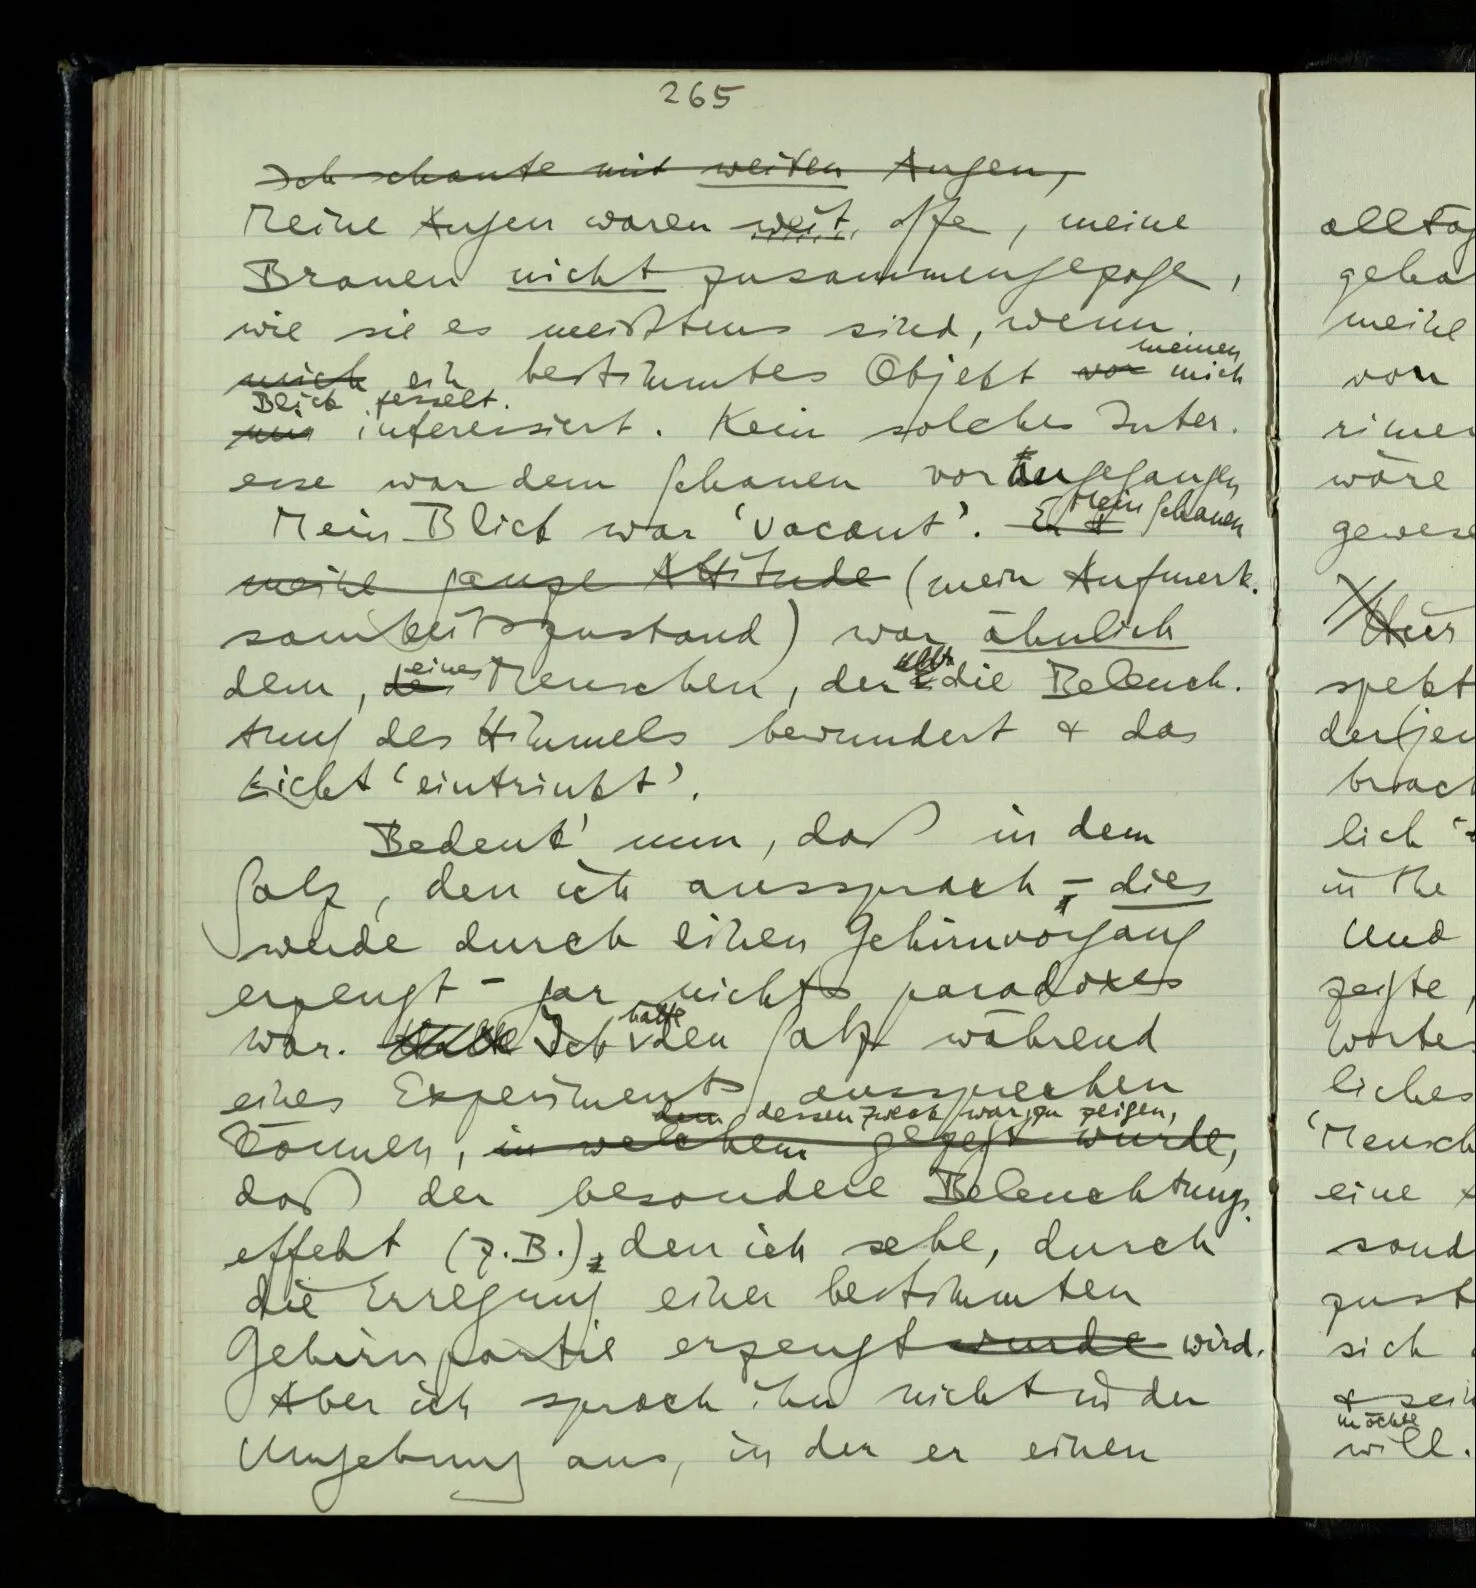 265
Ich schaute mit weiten Augen,
Meine Augen waren weit offe, meine
Brauen nicht zusammengezoge,
wie sie es meißtens sind, wenn
meinen
mich ein bestimmtes Objekt vor mich
Blick fesselt.
interessiert. Kein solches Inter-
esse war dem Schauen vorangegangen
Mein Schauen
Mein Blick war 'vacant'. Er
meine ganze Attitude (mein Aufmerk-
samkeitszustand) war ähnlich
eines
dem, des Menschen, der die Beleuch-
tung des Himmels bewundert & das
Licht 'eintrinkt'.
Bedenk' nun, daß in dem
Satz, den ich aussprach – dies
werde durch einen Gehirnvorgang
erzeugt – gar nichts paradoxes
hatte
war. Ich den Satz während
eines Experiments aussprechen
dem dessen Zweck war, zu zeigen,
können, in welchem gezeigt wurde,
daß der besondere Beleuchtungs-
effekt (z.B.), den ich sehe, durch
die Erregung einer bestimmten
Gehirnpartie erzeugt wurde wird.
Aber ich sprach ihn nicht in der
Umgebung aus, in der er einen
alltäg
geha
meine
von
rimen
wäre
gewese
Nur
spekt
derjen
brach
lich
in the
Und
zeigte,
Wortes
liches
'Mensch
eine
sond
zust
sich
& sein
möchte
will.